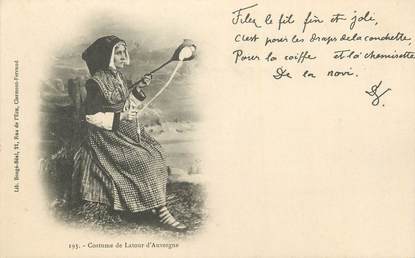 Filez le fil fin et joli,
C'est pour les draps de la couchette
Pour la coiffe et la chemisette
De la novi.
Lib. Bougé-Béal, 21, Rue de l'Ecu, Clermont-Ferrand
195. - Costume de Latour d'Auvergne